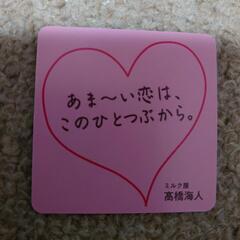 あま〜い恋は、
このひとつぶから。
ミルク屋
高橋海人